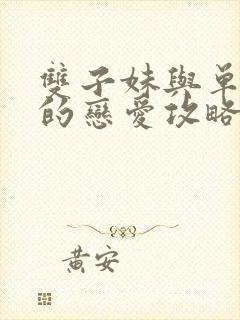 雙子妹與單
的戀愛攻略
黃安